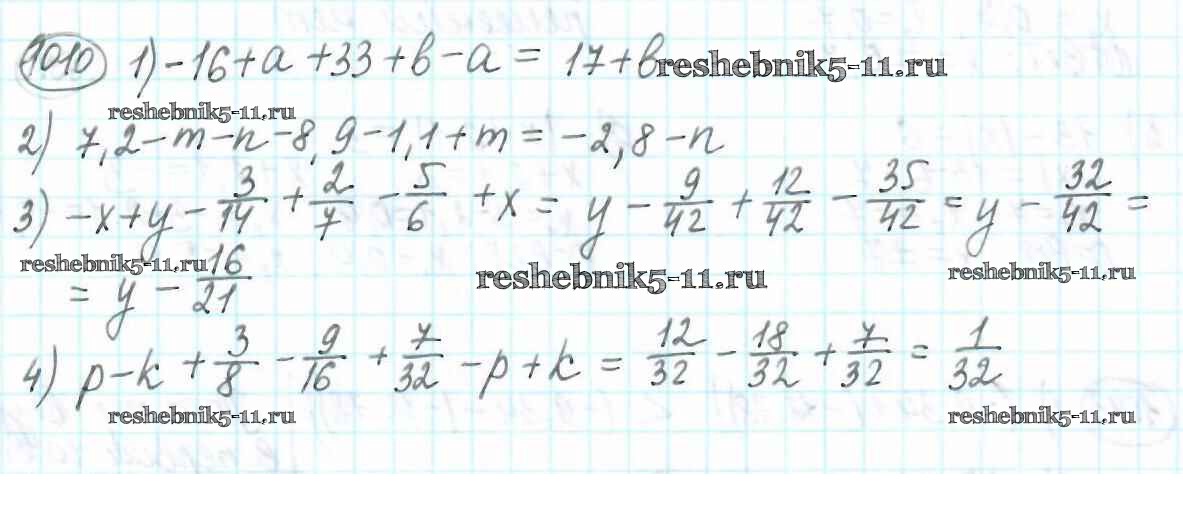 1010 1) -16+a+33+b-a = 17+b reshebnik5-11.ru
reshebnik5-11.ru
2) 7,2-m-n-8,9-1,1+m = -2,8-n
3) -x+y - 3/14 + 2/7 - 5/6 + x = y - 9/42 + 12/42 - 35/42 = y - 32/42 =
reshebnik5-11.ru reshebnik5-11.ru reshebnik5-11.ru
= y - 16/21
4) p-k + 3/8 - 9/16 + 7/32 - p+k = 12/32 - 18/32 + 7/32 = 1/32
reshebnik5-11.ru reshebnik5-11.ru